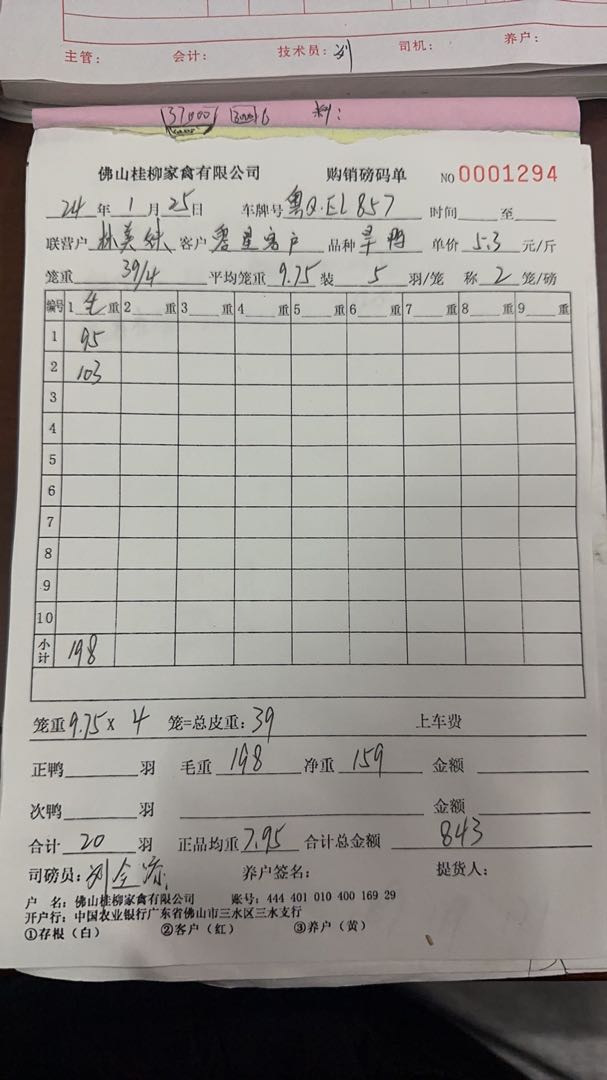 主管： 会计： 技术员：刘 司机： 养户：
37000
佛山桂柳家禽有限公司 购销磅码单 NO 0001294
24 年 1 月 25 日 车牌号 粤Q·EL857 时间 至
联营户 林美妹 客户 零星客户 品种 旱鸭 单价 5.3 元/斤
笼重 39/4 平均笼重 9.75 装 5 羽/笼 称 2 笼/磅
编号 1 毛 重 2 重 3 重 4 重 5 重 6 重 7 重 8 重 9 重
1 95
2 103
3
4
5
6
7
8
9
10
小计 198
笼重 9.75 x 4 笼=总皮重：39 上车费
正鸭 羽 毛重 198 净重 159 金额
次鸭 羽 金额
合计 20 羽 正品均重 7.95 合计总金额 843
司磅员：刘 养户签名： 提货人：
户 名：佛山桂柳家禽有限公司 账号：444 401 010 400 169 29
开户行：中国农业银行广东省佛山市三水区三水支行
①存根（白） ②客户（红） ③养户（黄）